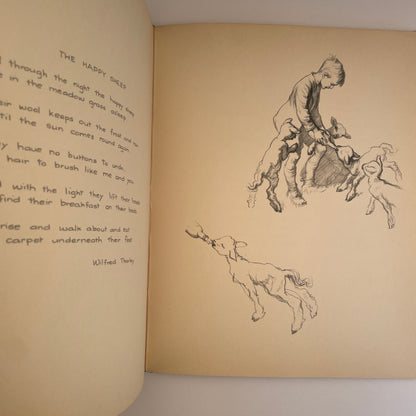 THE HAPPY SHEEP
through the night the happy sheep
in the meadow grass asleep
wool keeps out the frost and rain
the sun comes round again
have no buttons to undo
hair to brush like me and you
with the light they lift their heads
find their breakfast on their beds
rise and walk about and eat
carpet underneath their feet
Wilfred Thorley